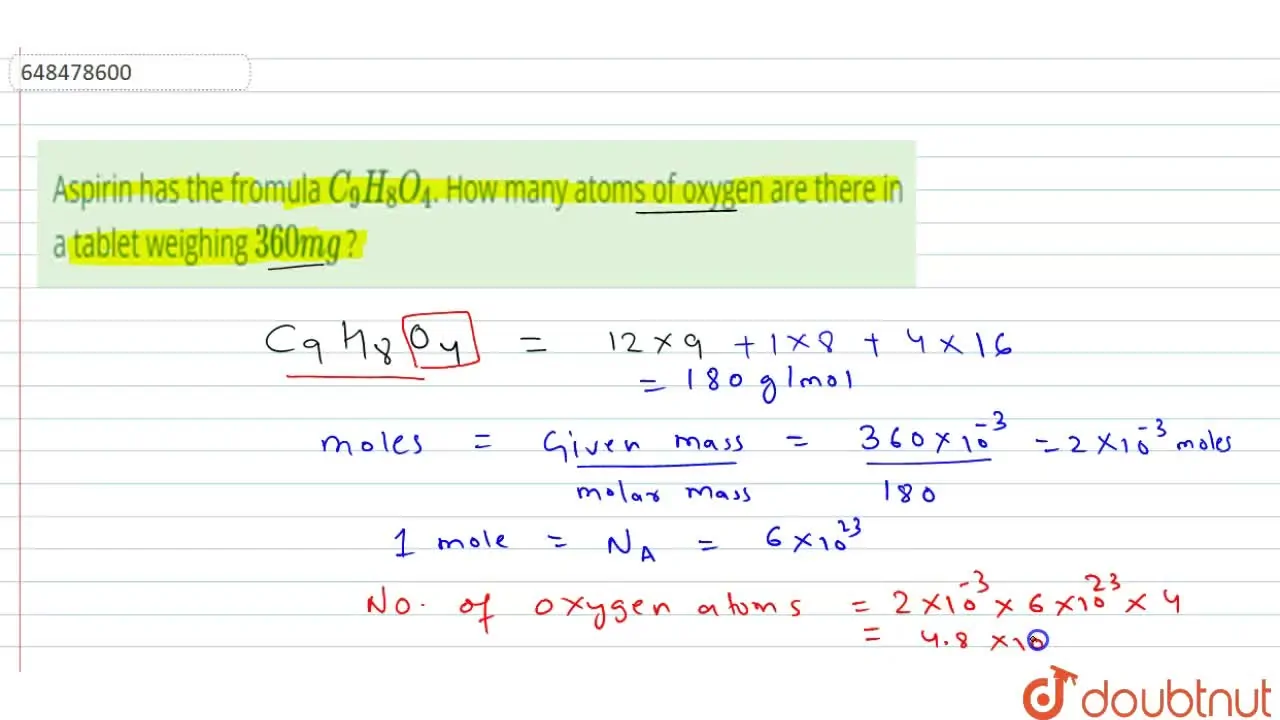 648478600
Aspirin has the fromula C₉H₈O₄. How many atoms of oxygen are there in
a tablet weighing 360mg?
C₉H₈O₄ = 12 × 9 + 1 × 8 + 4 × 16
= 180 g/mol
moles = Given mass / molar mass = 360 × 10⁻³ / 180 = 2 × 10⁻³ moles
1 mole = N_A = 6 × 10²³
No. of oxygen atoms = 2 × 10⁻³ × 6 × 10²³ × 4
= 4.8 × 10
doubtnut